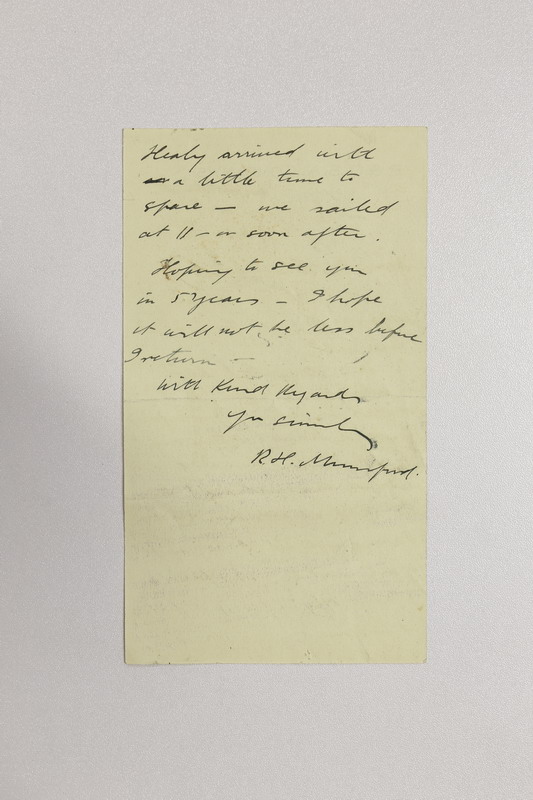 Healy arrived with
a little time to
spare — we sailed
at 11 – or soon after.
Hoping to see you
in 5 years – I hope
it will not be less before
I return –
With Kind Regards
Yrs sincerely
R.H. Mumford.